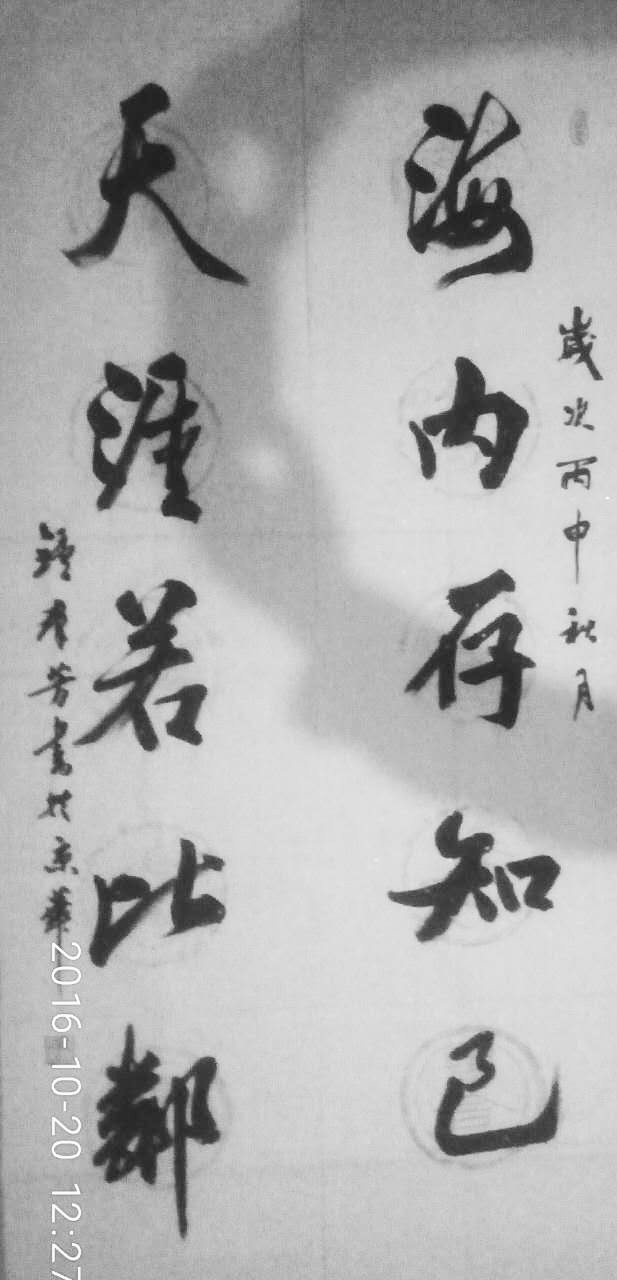 歲次丙申秋月
海內存知己
天涯若比鄰
鍾孝芳書於京華
2016-10-20 12:27